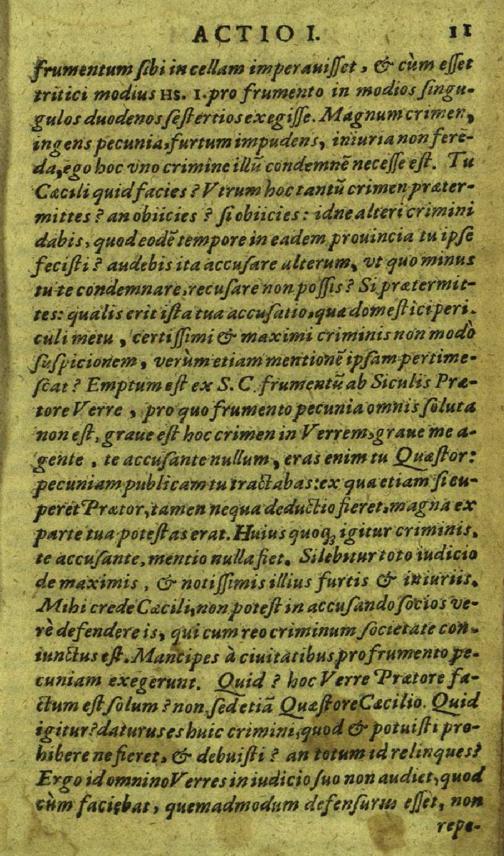 ACTIO I. 11
frumentum sibi in cellam imperauisset, & cùm esset
tritici modius HS. I. pro frumento in modios singu-
gulos duodenos sestertios exegisse. Magnum crimen,
ingens pecunia, furtum impudens, iniuria non fere-
da, ego hoc vno crimine illũ condemnẽ necesse est. Tu
Cæcili quid facies? Vtrum hoc tantũ crimen præter-
mittes? an obiicies? si obiicies: idne alteri crimini
dabis, quod eodẽ tempore in eadem prouincia tu ipse
fecisti? audebis ita accusare alterum, vt quo minus
tute condemnare, recusare non possis? Si prætermit-
tes: qualis erit ista tua accusatio, quæ domestici peri-
culi metu, certissimi & maximi criminis non modò
suspicionem, verùm etiam mentionẽ ipsam pertime-
scat? Emptum est ex S. C. frumentũ ab Siculis Præ-
tore Verre, pro quo frumento pecunia omnis soluta
non est, graue est hoc crimen in Verrem, graue me a-
gente, te accusante nullum, eras enim tu Quæstor:
pecuniam publicam tu tractabas: ex qua etiam si cu-
peret Prætor, tamen nequa deductio fieret, magna ex
parte tua potestas erat. Huius quoq; igitur criminis,
te accusante, mentio nulla fiet. Silebitur toto iudicio
de maximis, & notissimis illius furtis & iniuriis.
Mihi crede Cæcili, non potest in accusando socios ve-
rè defendere is, qui cum reo criminum societate con-
iunctus est. Mancipes à ciuitatibus pro frumento pe-
cuniam exegerunt. Quid? hoc Verre Prætore fa-
ctum est solum? non, sed etiã Quæstore Cæcilio. Quid
igitur? daturus es huic crimini, quod & potuisti pro-
hibere ne fieret, & debuisti? an totum id relinques?
Ergo id omnino Verres in iudicio suo non audiet, quod
cùm faciebat, quemadmodum defensurus esset, non
repe-